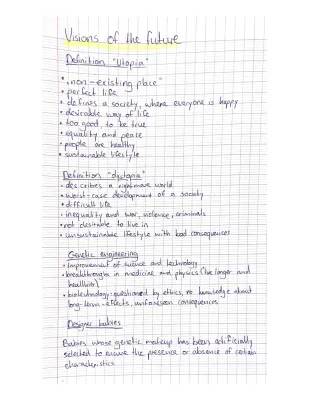 Visions of the future
Definition "Utopia"
• "non-existing place"
• perfect life
• defines a society, where everyone is happy
• desirable way of life
• too good, to be true
• equality and peace
• people are healthy
• sustainable lifestyle
Definition "dystopia"
• describes a nightmare world
• worst-case development of a society
• difficult life
• inequality and war, violence, criminals
• not desirable to live in
• unsustainable lifestyle with bad consequences
Genetic engineering
• improvement of science and technology
• breakthroughs in medicine and physics (live longer and
healthier)
• biotechnology: questioned by ethics, no knowledge about
long-term-effects, unforeseen consequences
Designer babies
Babies whose genetic makeup has been artificially
selected to ensure the presence or absence of certain
characteristics